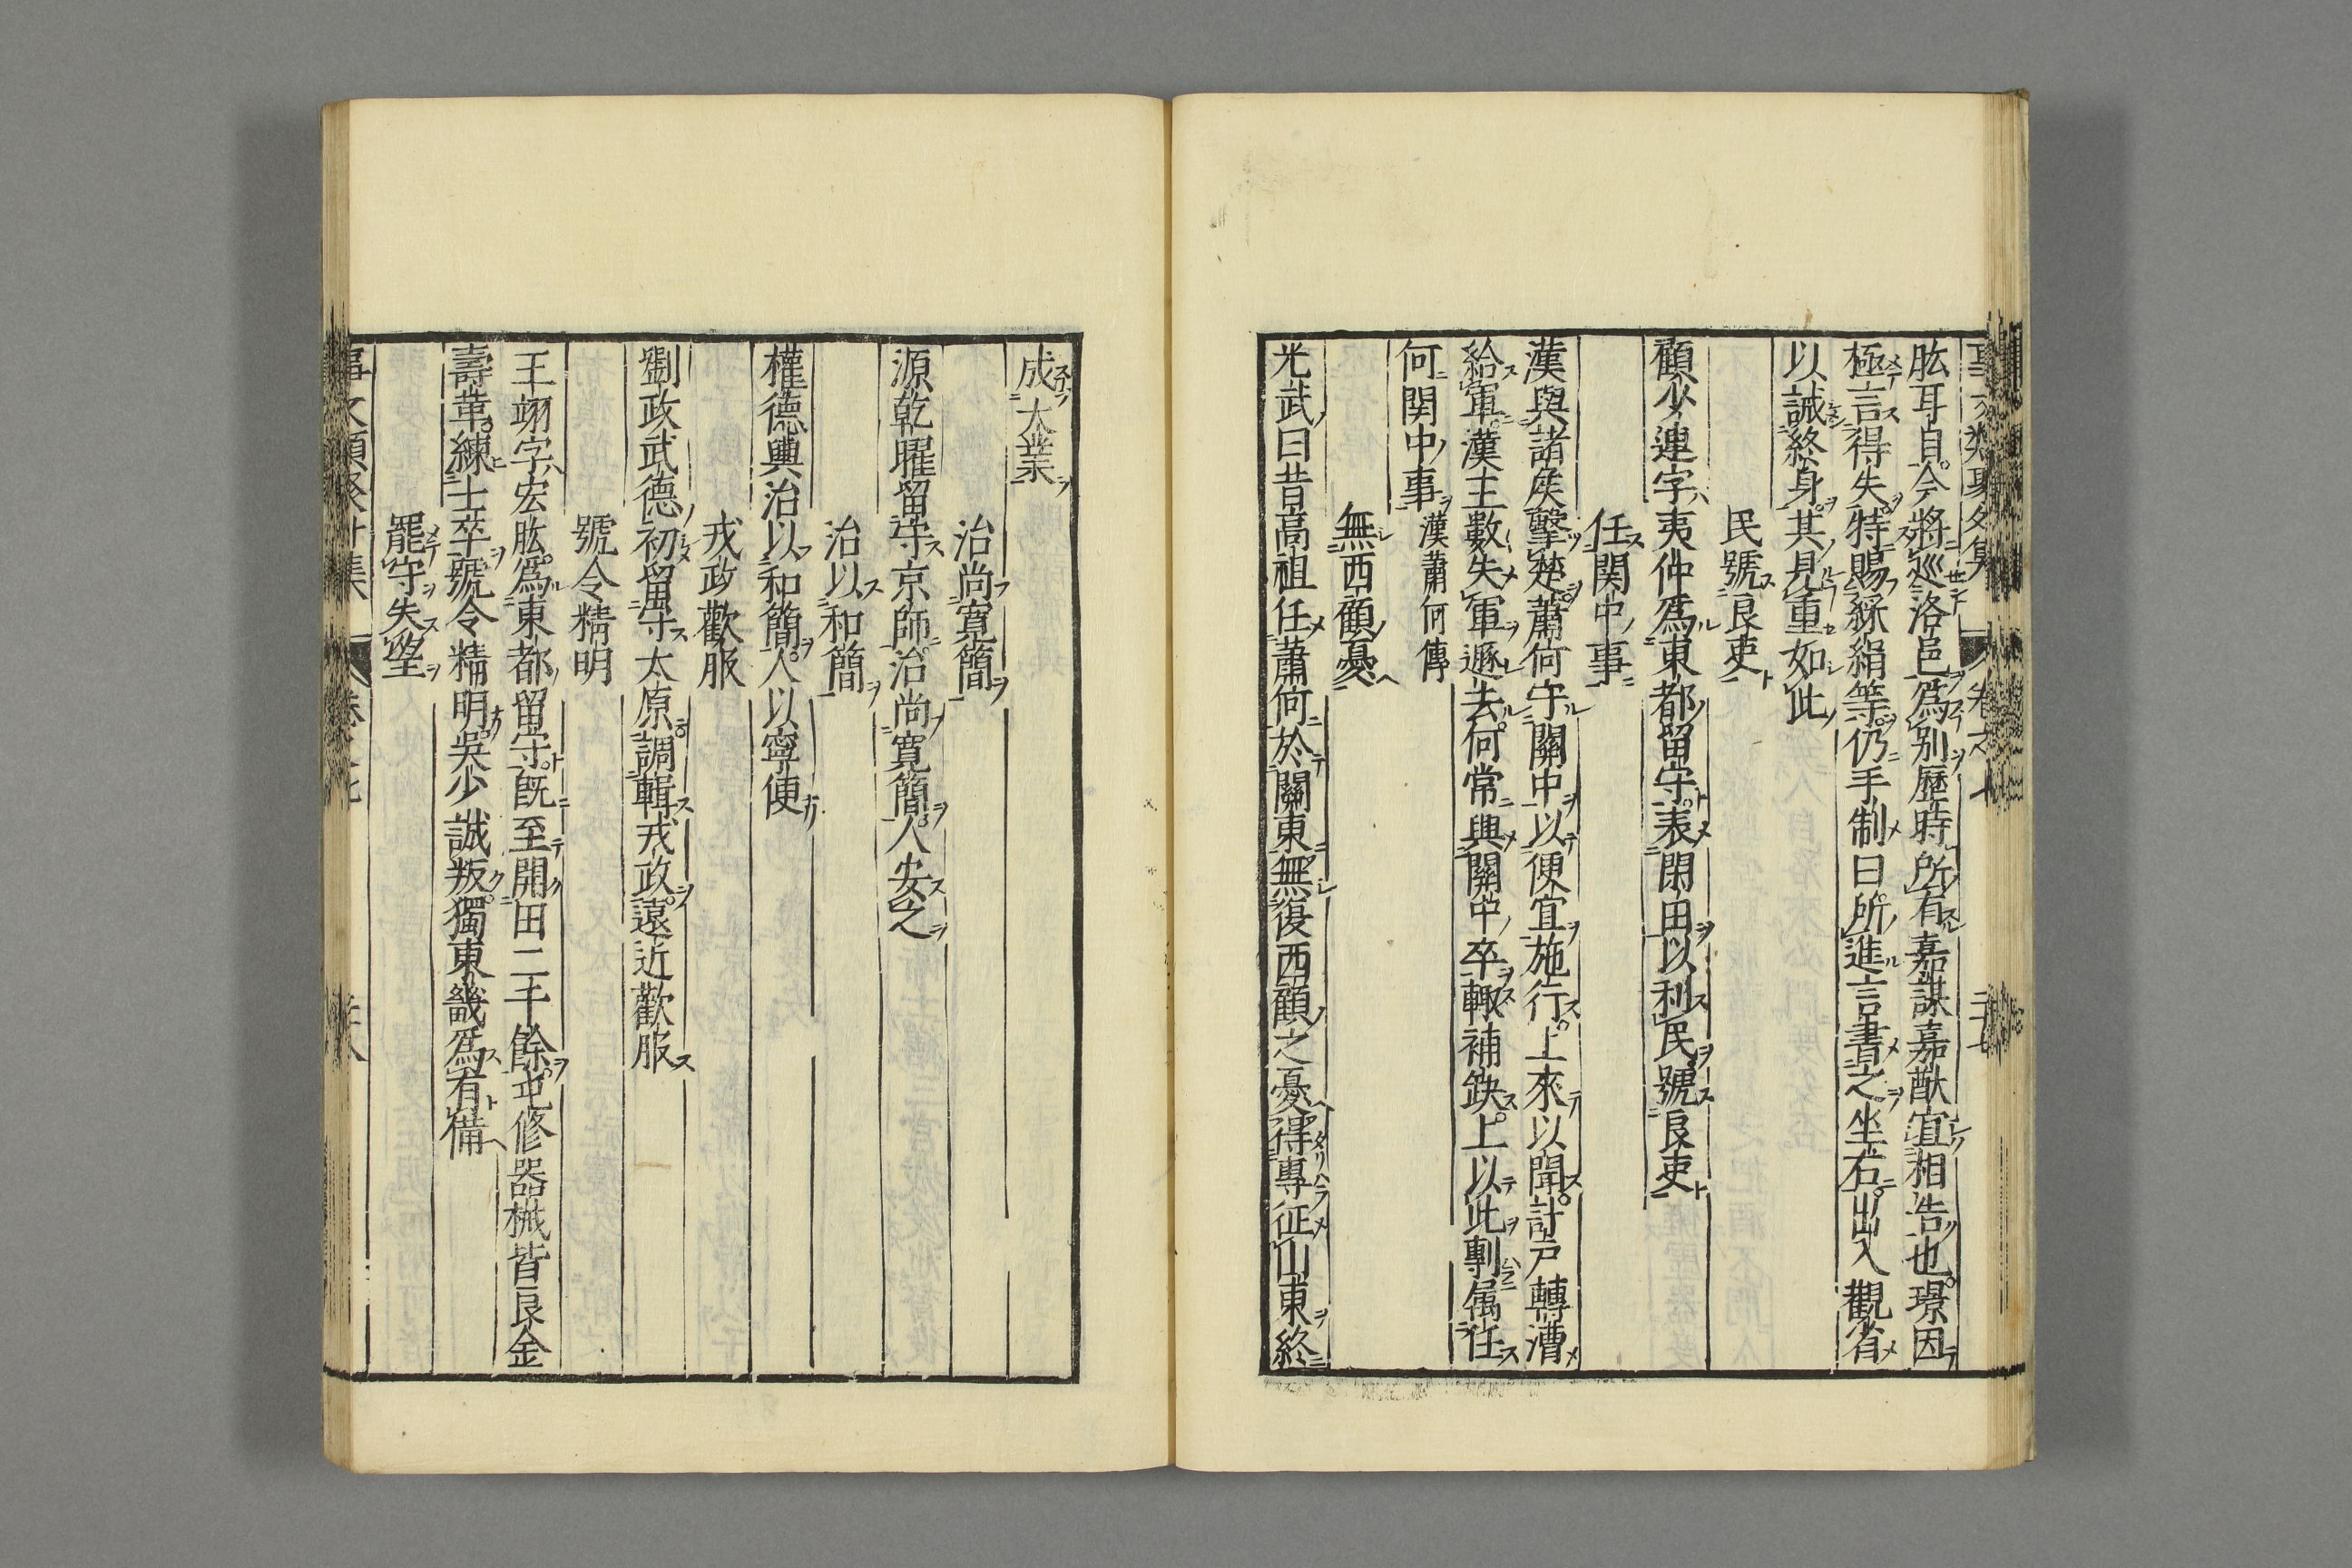 肱耳目今將巡洛邑爲別歷時所有嘉謀嘉猷宜相告也璟因
極言得失特賜綵絹等仍手制曰所進言書之坐右出入觀省
以誡終身其見重如此
民號良吏
顧少連字夷仲爲東都留守表閑田以利民號良吏
任関中事
漢與諸矦擊楚蕭何守關中以便宜施行上來以聞計戸轉漕
給軍漢王數失軍遯去何常興關中卒輙補缺上以此剸属任
何関中事漢蕭何傳
無西顧憂
光武曰昔高祖任蕭何於關東無復西顧之憂得專征山東終
成大業
治尚寛簡
源乾曜留守京師治尚寛簡人安之
治以和簡
權德輿治以和簡人以寧便
戎政歡服
劉政武德初留守太原調輯戎政遠近歡服
號令精明
王翊字宏肱爲東都留守既至開田二千餘屯修器械皆良金
壽革練士卒號令精明吳少誠叛獨東畿爲有備
罷守失望